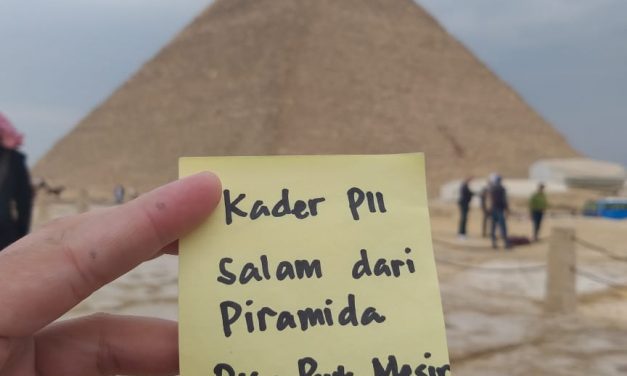 Kader PII
salam dari
Piramida
Mesir